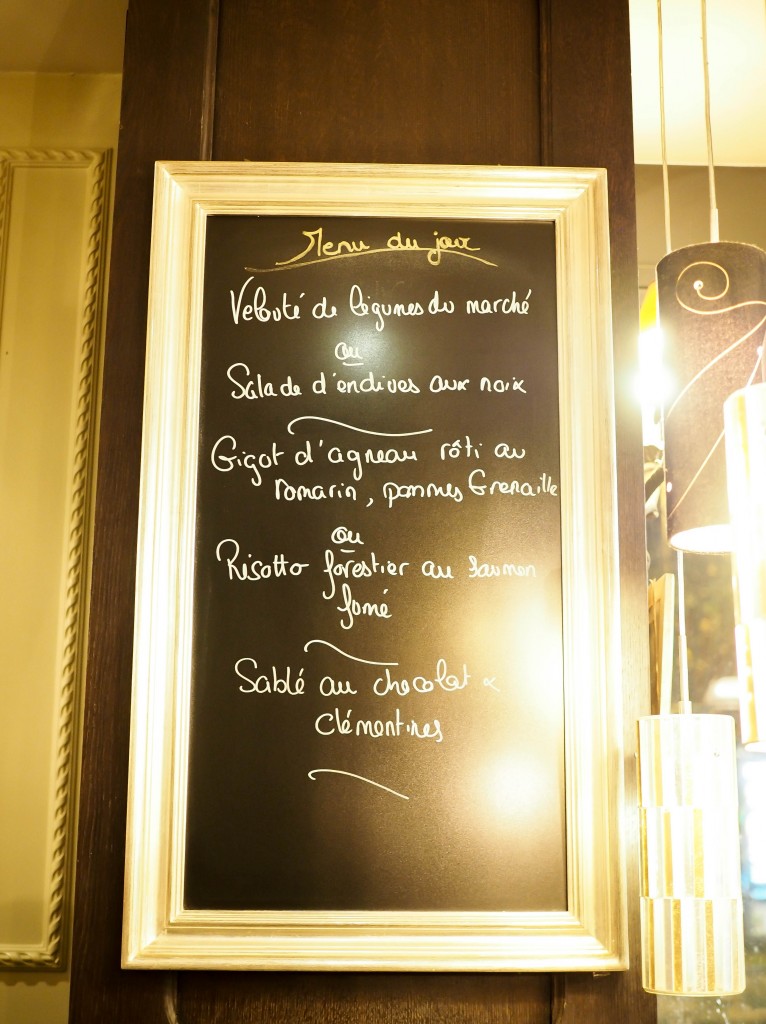 Menu du jour
Velouté de légumes du marché
ou
Salade d'endives aux noix
Gigot d'agneau rôti au
romarin, pommes Grenaille
ou
Risotto forestier au saumon
fumé
Sablé au chocolat &
Clémentines